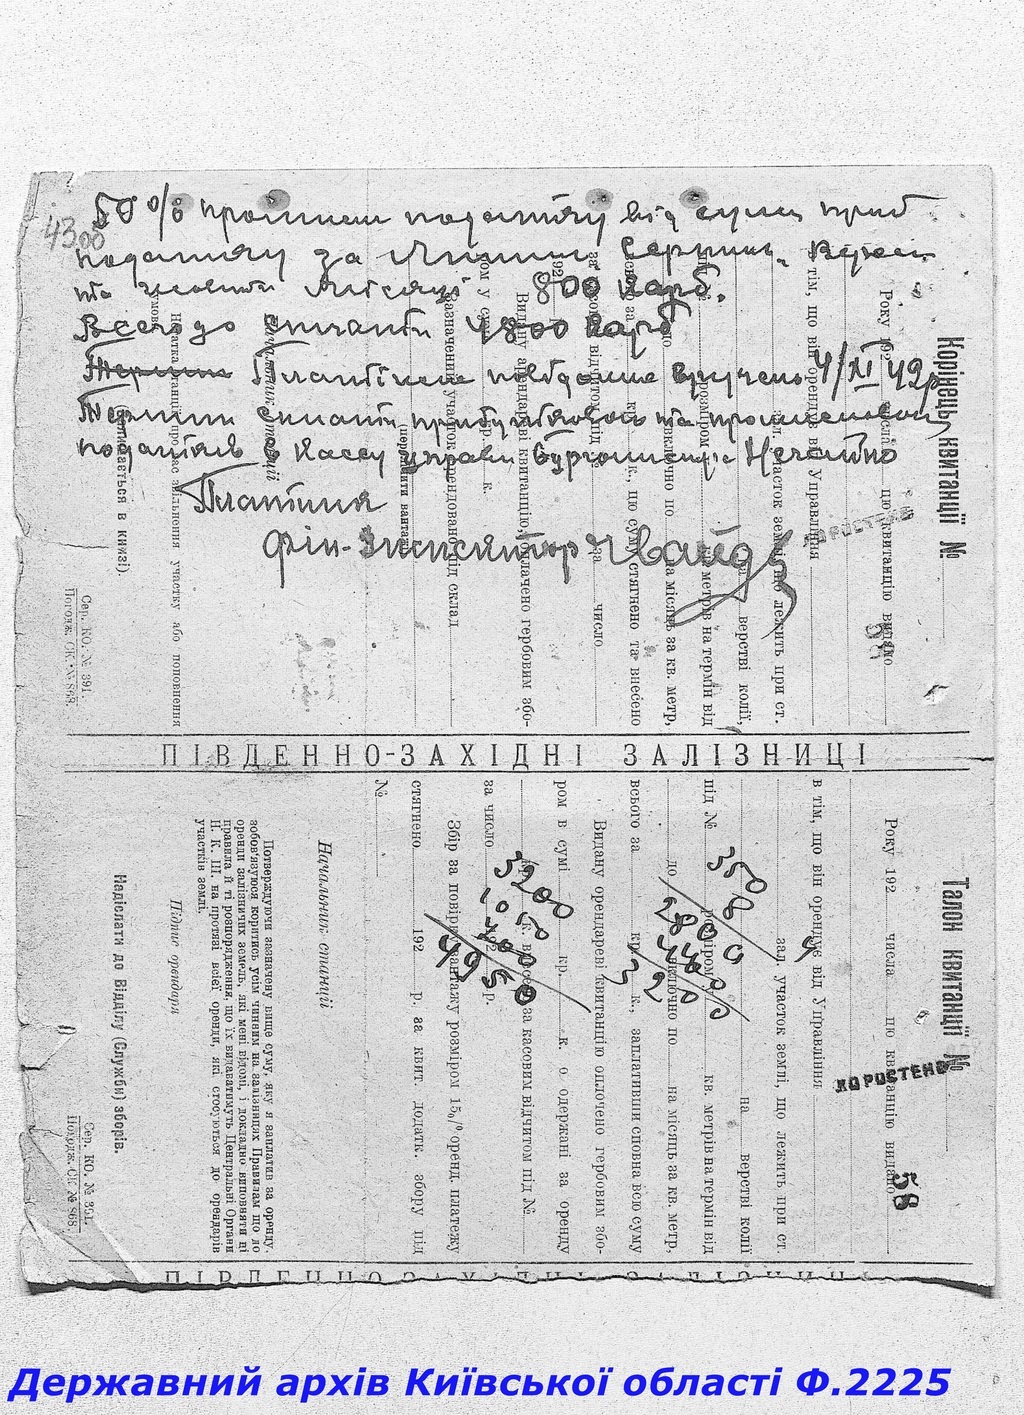 50% промисли податку від суми приб.
податку за Липень Серпень, Верес.
та жовтень місяці 800 карб.
Всегодо сплати 4800 карб
Платіжне повідомлення вручено 4/XI 42р
Термін сплати прибуткового та промислового
податків в кассу управи Бургомистра Негайно
Платник
фін-інспектор
4300
Корінець квитанції №
Року 192 числа цю квитанцію видано
в тім, що він орендує від Управління
зал. участок землі, що лежить при ст.
на верстві колії,
розміром кв. метрів на термін від
включно по на місяць за кв. метр,
к., цю суму стягнено та внесено
за число
Видану орендареві квитанцію оплачено гербовим збо-
ром у сумі кр. к.
Зазначений участок орендовано під склад
(перелічити вантаж)
Начальник станції
КОРОСТЕНЬ
58
Сер. КО. № 391.
Погодж. СК. № 868.
ПІВДЕННО-ЗАХІДНІ ЗАЛІЗНИЦІ
Талон квитанції №
Року 192 числа цю квитанцію видано
в тім, що він орендує від Управління
зал. участок землі, що лежить при ст.
на верстві колії
під № розміром кв. метрів на термін від
до включно по на місяць за кв. метр,
всього за кр. к., заплативши сповна всю суму
Видану орендареві квитанцію оплочено гербовим збо-
ром в сумі кр. к. о одержані за оренду
кр. к. внесено за касовим відчитом під №
за число 192 р.
Збір за повірку вантажу розміром 15% оренд. платежу
стягнено 192 р. за квит. додатк. збору під
№
Начальник станції
Потверджуючи зазначену вище суму, яку я заплатив за оренду,
зобов'язуюся коритись усім чинним на залізницях Правилам що до
оренди залізничих земель, які мені відомі, і докладно виповняти ці
правила й ті розпорядження, що їх видаватимуть Центральні Органи
Н. К. Ш. на протязі всієї оренди, які стосуються до орендарів
участків землі.
Підпис орендаря
Надіслати до Відділу (Служби) зборів.
Сер. КО. № 391.
Погодж. СК № 868.
КОРОСТЕНЬ
58
350
8
2800
400
3200
3200
1050
700
4950
ПІВДЕННО-ЗАХІДНІ ЗАЛІЗНИЦІ
Державний архів Київської області Ф.2225